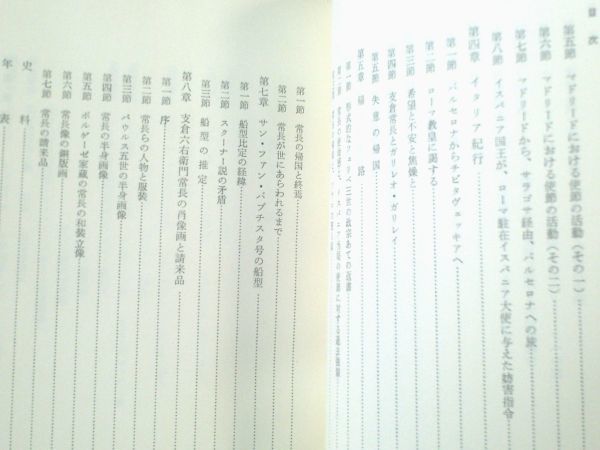 目次
第五節　マドリードにおける使節の活動（その一）
第六節　マドリードにおける使節の活動（その二）
第七節　マドリードから、サラゴサ経由、バルセロナへの旅
第八節　イスパニア国王が、ローマ駐在イスパニア大使に与えた妨害指令
第四章　イタリア紀行
第一節　バルセロナからチビタヴェッキアへ
第二節　ローマ教皇に謁する
第三節　希望と不安と焦燥と
第四節　支倉常長とガリレオ・ガリレイ
第五節　失意の帰国
第五章　帰路
第一節
第二節
第一節　常長の帰国と終焉
第二節　常長が世にあらわれるまで
第七章　サン・ファン・バプチスタ号の船型
第一節　船型比定の経緯
第二節　スクーナー説の矛盾
第三節　船型の推定
第八章　支倉六右衛門常長の肖像画と請来品
第一節　序
第二節　常長らの人物と服装
第三節　パウルス五世の半身画像
第四節　常長の半身画像
第五節　ボルゲーゼ家蔵の常長の和装立像
第六節　常長像の銅版画
第七節　常長の請来品
史料
年表